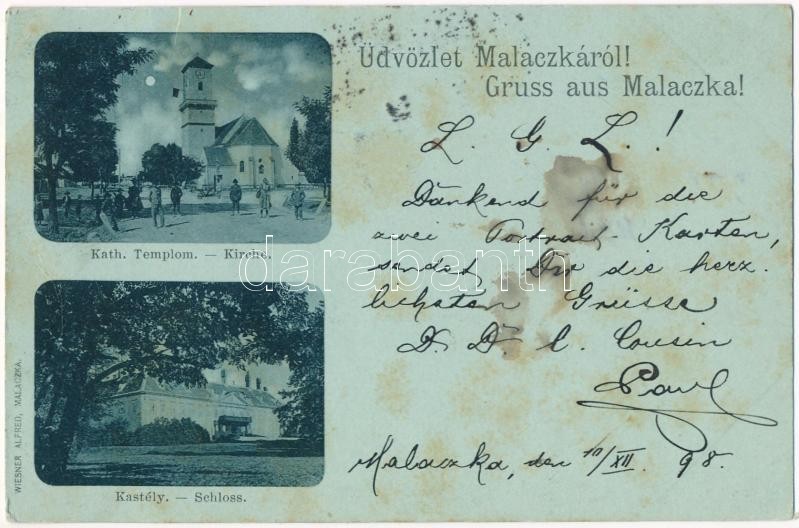 Üdvözlet Malaczkáról!
Gruss aus Malaczka!
Kath. Templom. — Kirche.
Kastély. — Schloss.
WIESNER ALFRED, MALACZKA.
L. G. L.!
Dankend für die
zwei Portrait-Karten,
sendet Dir die herz-
lichsten Grüsse
D. D. l. Cousin
Paul
Malaczka, den 10/XII. 98.
darabanth